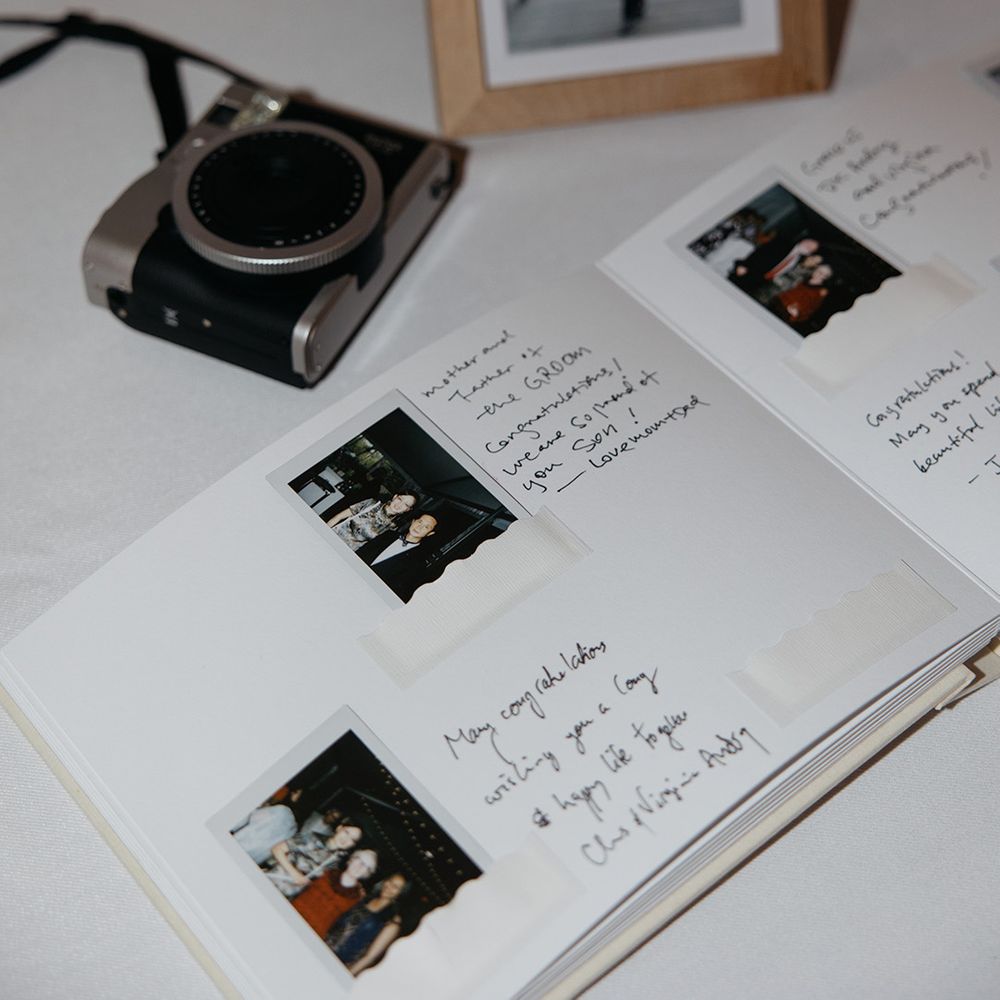 mother and
Father of
the GROOM
Congratulations!
we are so proud of
you Son!
— Love mom & Dad
Many congratulations
wishing you a long
& happy life together
Chris & Virginia
Congratulations!
Congratulations!
May you spend
beautiful